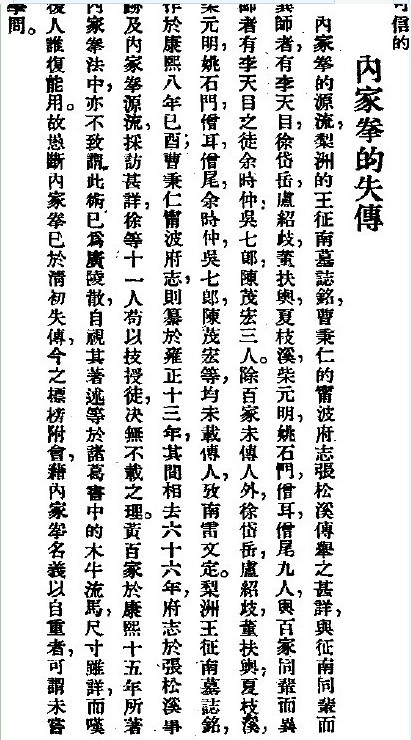 可信的
內家拳的失傳
內家拳的源流,梨洲的王征南墓誌銘,曹秉仁的甯波府志張松溪傳舉之甚詳,與征南同輩而
異師者,有李天目,徐岱岳,盧紹歧,董扶輿,夏枝溪,柴元明,姚石門,僧耳僧尾九人,與百家同輩而異
師者有李天目之徒余時仲,吳七郎,陳茂宏三人。除百家未傳人外,徐岱岳,盧紹歧,董扶輿,夏枝溪,
柴元明,姚石門,僧耳僧尾,余時仲,吳七郎,陳茂宏等,均未載傳人,攷南雷文定。梨洲王征南墓誌銘,
作於康熙八年己酉;曹秉仁甯波府志,則纂於雍正十三年,其間相去六十六年,府志於張松溪事
跡及內家拳源流,採訪甚詳,徐等十一人苟以技授徒,決無不載之理。黃百家於康熙十五年所著
內家拳法中,亦不致謂此術已為廣陵散,自視其著述等於諸葛書中的木牛流馬,尺寸雖詳而嘆
後人誰復能用。故恐斷內家拳已於清初失傳,今之標榜附會,藉內家拳名義以自重者,可謂未嘗
學問。